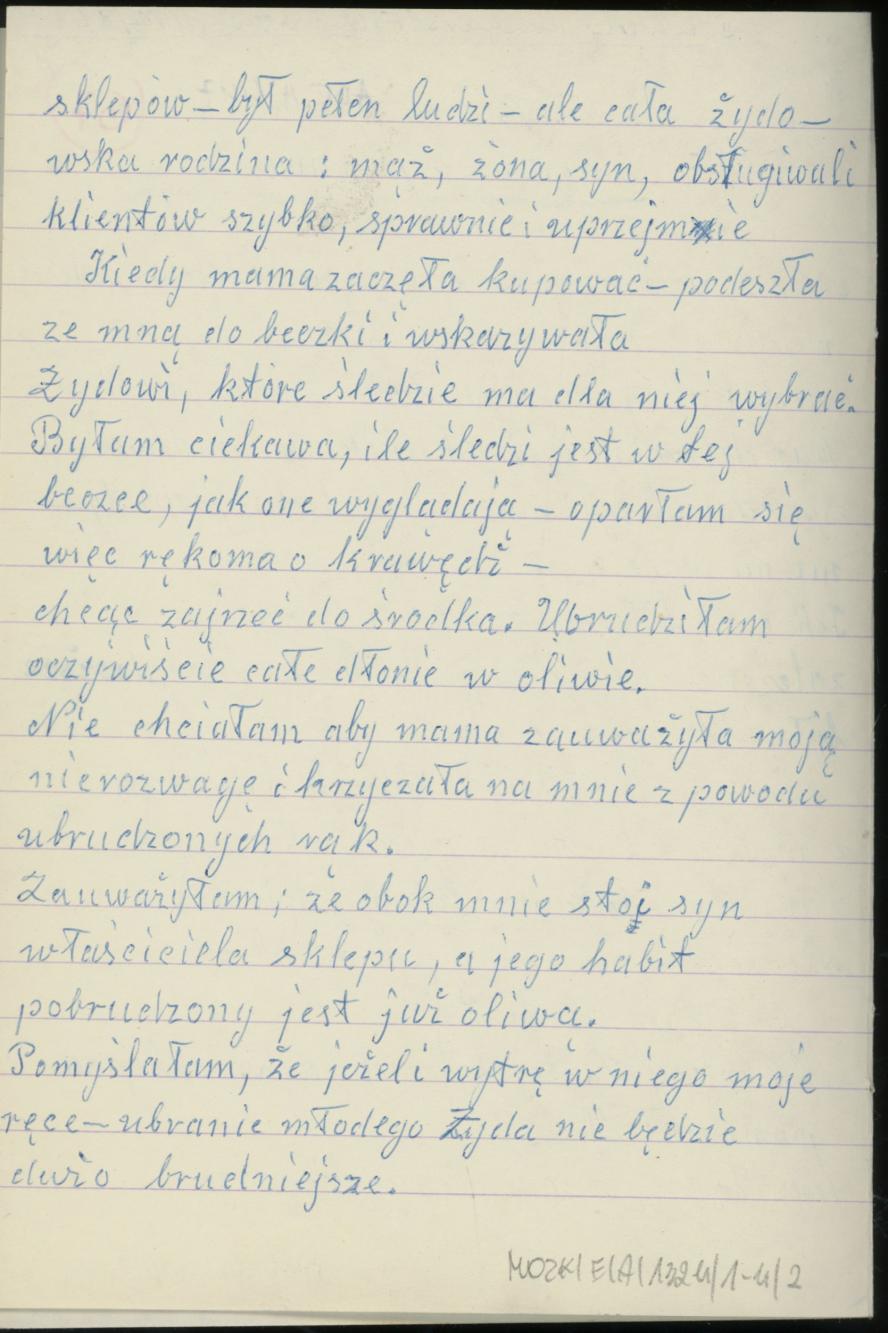 sklepów – był pełen ludzi – ale cała żydo–
wska rodzina : mąż, żona, syn, obsługiwali
klientów szybko, sprawnie i uprzejmie
Kiedy mama zaczęła kupować – podeszła
ze mną do beczki i wskazywała
Żydowi, które śledzie ma dla niej wybrać.
Byłam ciekawa, ile śledzi jest w tej
beczce, jak one wyglądają – oparłam się
więc rękoma o krawędź –
chcąc zajrzeć do środka. Ubrudziłam
oczywiście całe dłonie w oliwie.
Nie chciałam aby mama zauważyła moją
nierozwagę i krzyczała na mnie z powodu
ubrudzonych rąk.
Zauważyłam, że obok mnie stoi syn
właściciela sklepu, a jego habit
pobrudzony jest już oliwą.
Pomyślałam, że jeżeli wytrę w niego moje
ręce – ubranie młodego Żyda nie będzie
dużo brudniejsze.
MOZK/E/A/1324/1-4/2